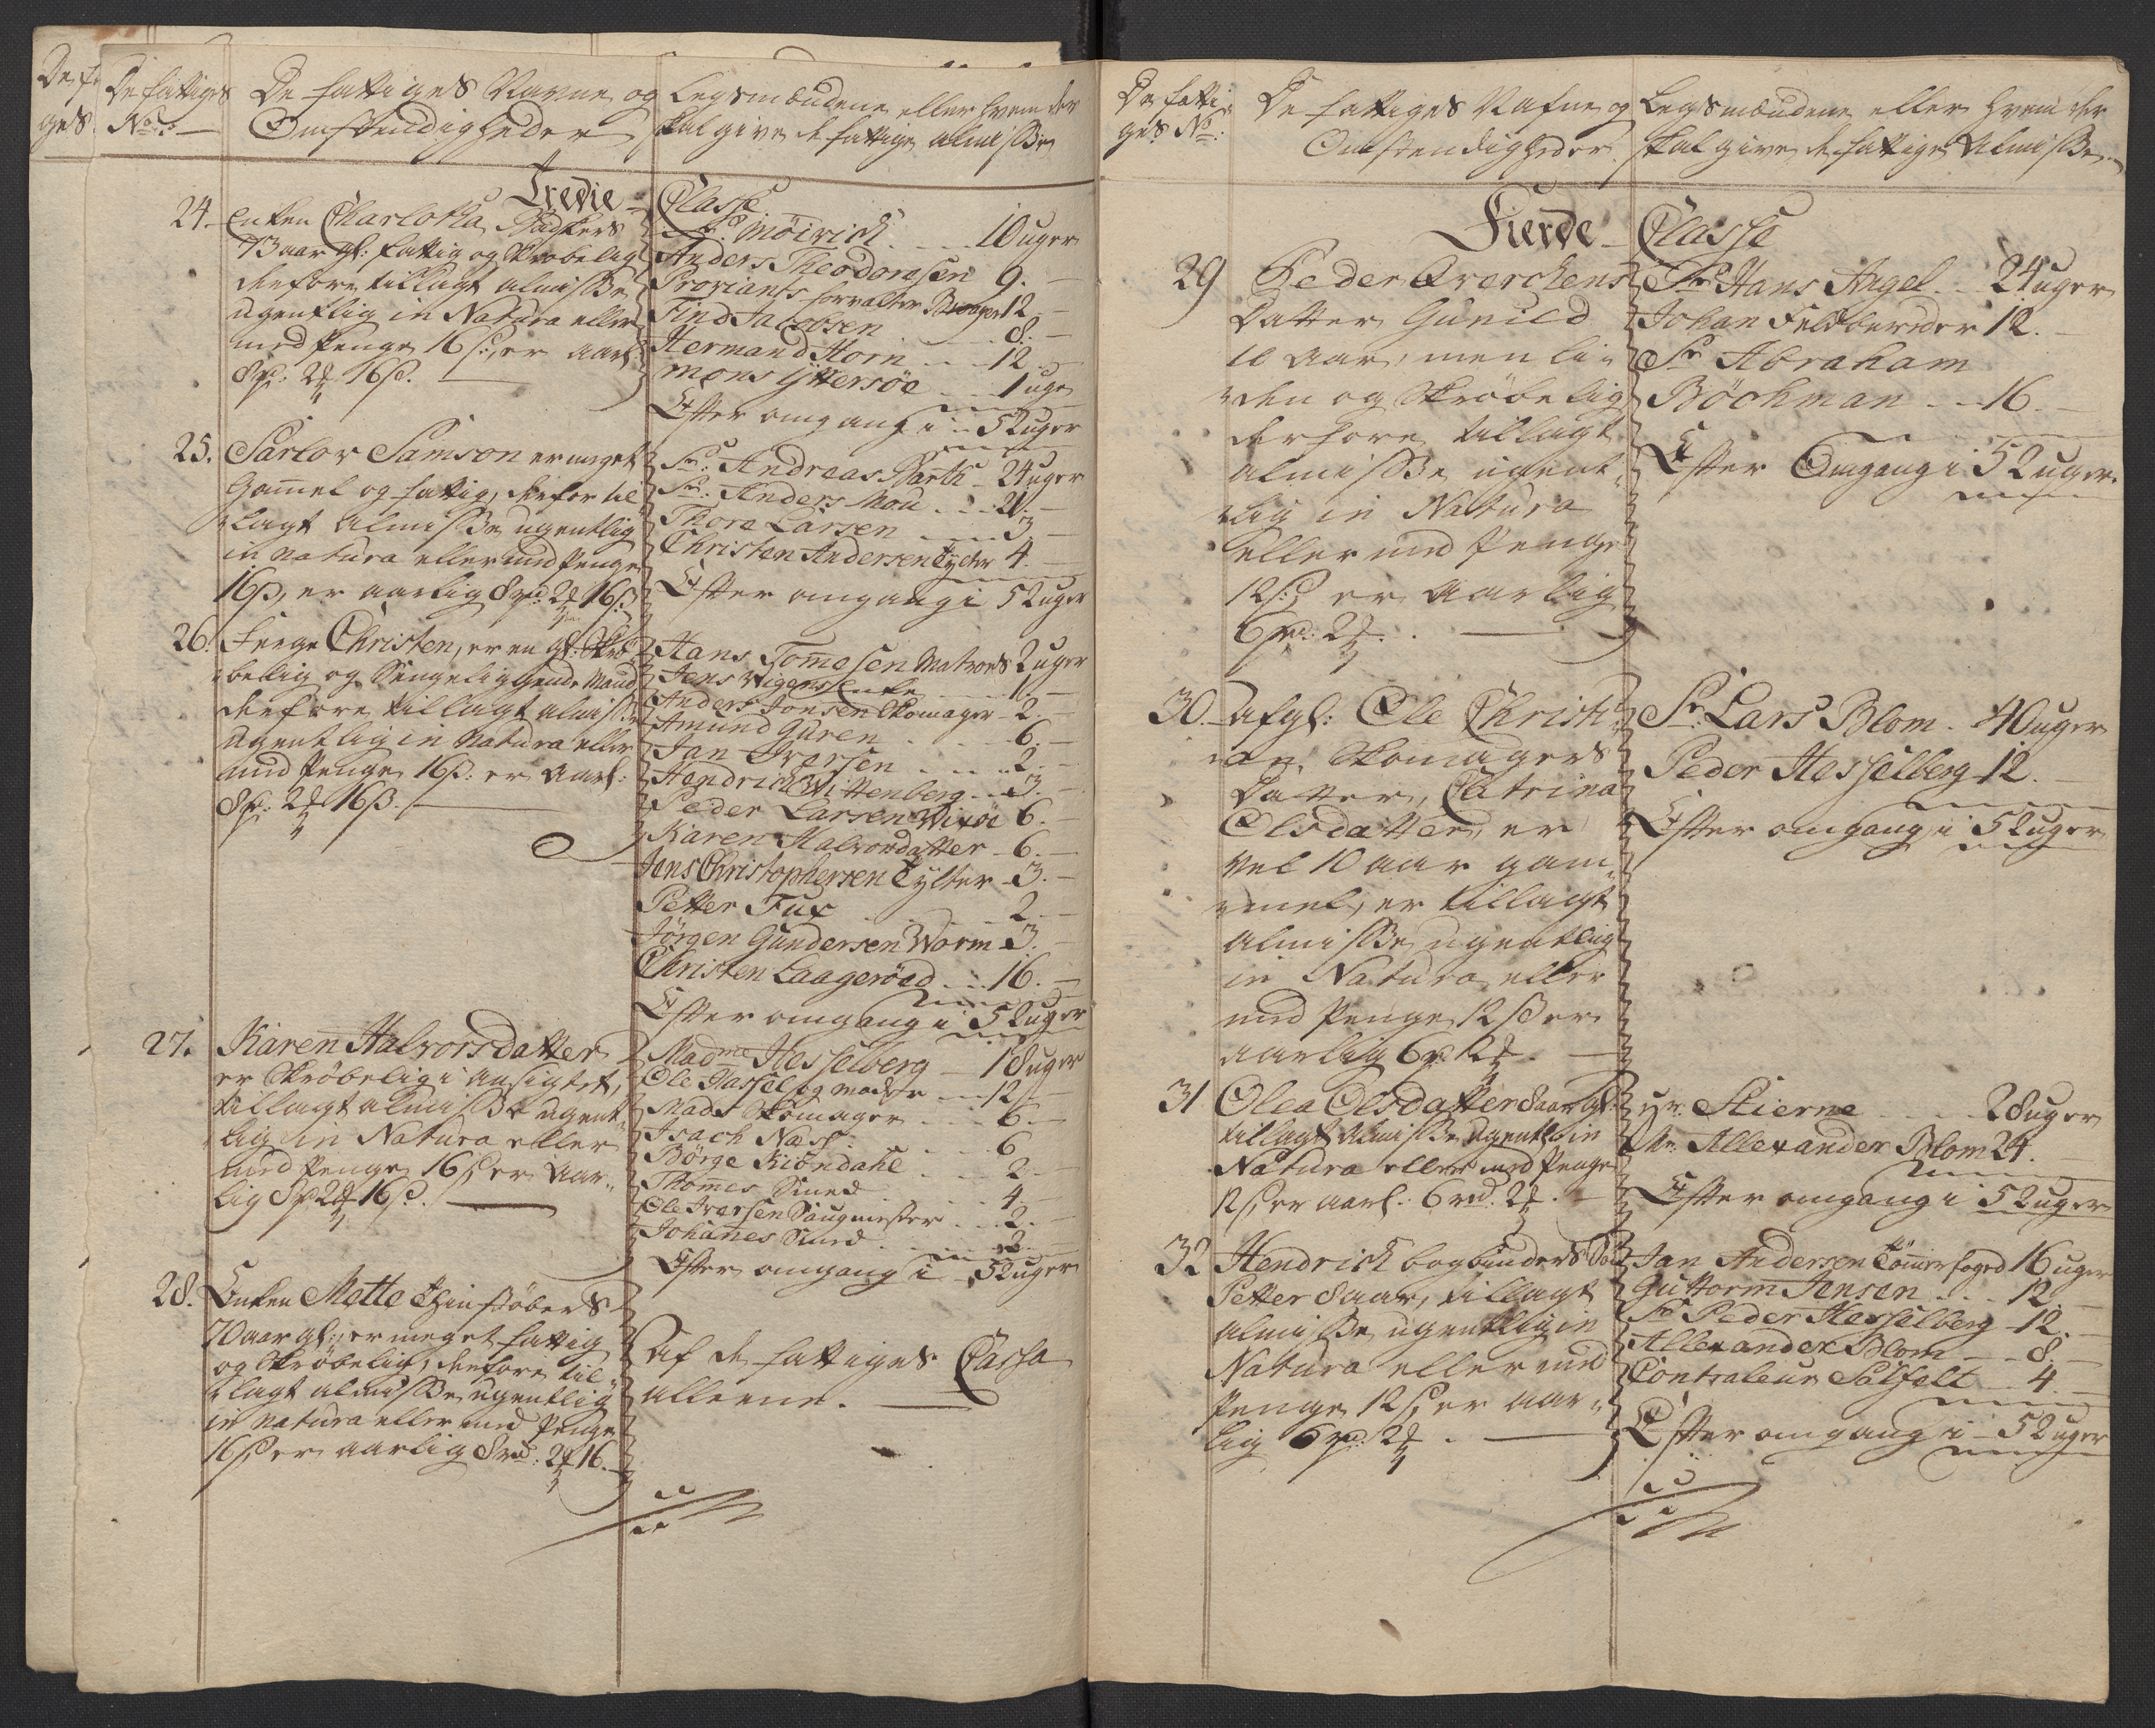 De fattiges
No.
De fattiges Navne og
Omstendigheder
Legsmændene eller hvem der
skal give de fattige almisse
Tredie Classe
24. Enken Charlotha Bødkers
73 aar gl: fattig og skrøbelig
derfore tillagt almisse
ugentlig in Natura eller
med Penge 16 s: er aarl:
8 rd: 2 16 s.
Sr. Möirich 10 uger
Anders Theodorsen 9. -
Proviants forvalter 12 -
Find Jacobsen 8. -
Hermand Horn 12 -
Mons Yttersöe 1 uge
Efter omgang i 52 uger
25. Sarlov Samson er meget
Gammel og fattig, derfor til
lagt almisse ugentlig
in natura eller med Penge
16 s, er aarlig 8 rd: 2 16 s
Sr: Andreas Barth 24 uger
Sr: Anders Mou 21. -
Thore Larsen 3 -
Christen Andersen Tycher 4. -
Efter omgang i 52 uger
26. Feege Christen, er en gl: skrø
belig og Sengeliggende Mand
derfore tillagt almisse
ugentlig in Natura eller
med Penge 16 s: er aarl:
8 rd: 2 16 s.
Hans Tomesen Matroes 2 uger
Jens Wigens enke 1. -
Anders Jonsen Skomager 2. -
Amund Guren 6. -
Jan Iversen 2. -
Hendrich Wittenberg 3. -
Peder Larsen Wixöe 6. -
Karen Halvorsdatter 6. -
Jens Christophersen Tylter 3. -
Petter Fux 2. -
Jörgen Gundersen Worm 3. -
Christen Laageröed 16. -
Efter omgang i 52 uger
27. Karen Halvorsdatter
er skrøbelig i ansigtet,
tillagt almisse ugent
lig in Natura eller
med Penge 16 s er aar
lig 8 rd 2 16 s.
Madme Hesselberg 18 uger
Ole Hassel og moder 12 -
Mads Skomager 6. -
Isach Næss 6
Börge Kiöndahl 2 -
Thomes Smed 4. -
Ole Iversen Saugmester 2. -
Johanes Smed 2. -
Efter omgang i 52 uger
28. Enken Mette
70 aar gl: er meget fattig
og skrøbelig, derfore til
lagt almisse ugentlig
in natura eller med Penge
16 s er aarlig 8 rd: 2 16.
af de fattiges Cassa
alleene.
De fatti-
ges No:
De fattiges Nafne og
Omstendigheder
Legsmændene eller hvem der
skal give de fattige Almisse
Fierde Classe
29 Peder Qverchens
Datter Gunild
10 aar, men li-
den og skrøbelig
derfore tillagt
almisse ugent
lig in Natura
eller med Penge
12 s: er aarlig
6 rd: 2
Sr. Hans Angel 24 uger
Johan Feldbereder 12. -
Sr Abraham
Böchman 16. -
Efter Omgang i 52 uger
30. afgl: Ole Christi
an Skomagers
Datter, Catrina
Olsdatter, er
vel 10 aar gam
mel, er tillagt
almisse ugentlig
in Natura eller
med Penge 12 s er
aarlig 6 rd 2
Sr. Lars Blom 40 uger
Peder Hesselberg 12. -
Efter omgang i 52 uger
31 Olea Olsdatter 8 aar gl:
tillagt almisse ugentl: in
Natura eller med Penge
12 s er aarl: 6 rd: 2
Hr. Stierne 28 uger
Sr: Allexander Blom 24. -
Efter omgang i 52 uger
32 Hendrich bogbinders Søn
Petter 8 aar, tillagt
almisse ugentlig in
Natura eller med
Penge 12 s, er aar-
lig 6 rd: 2
Jan Andersen Tömerfoged 16 uger
Guttorm Jensen 12 -
Sr Peder Hesselberg 12. -
Allexander Blom 8. -
Contraleur Salfelt 4. -
Efter omgang i 52 uger